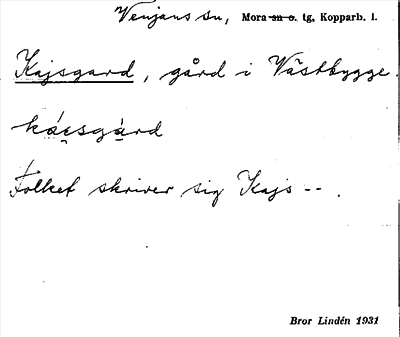 Venjans sn, Mora sn o. tg, Kopparb. l.
Kajsgard, gård i Västbygge.
káisgà̱rd
Folket skriver sig Kajs --.
Bror Lindén 1931